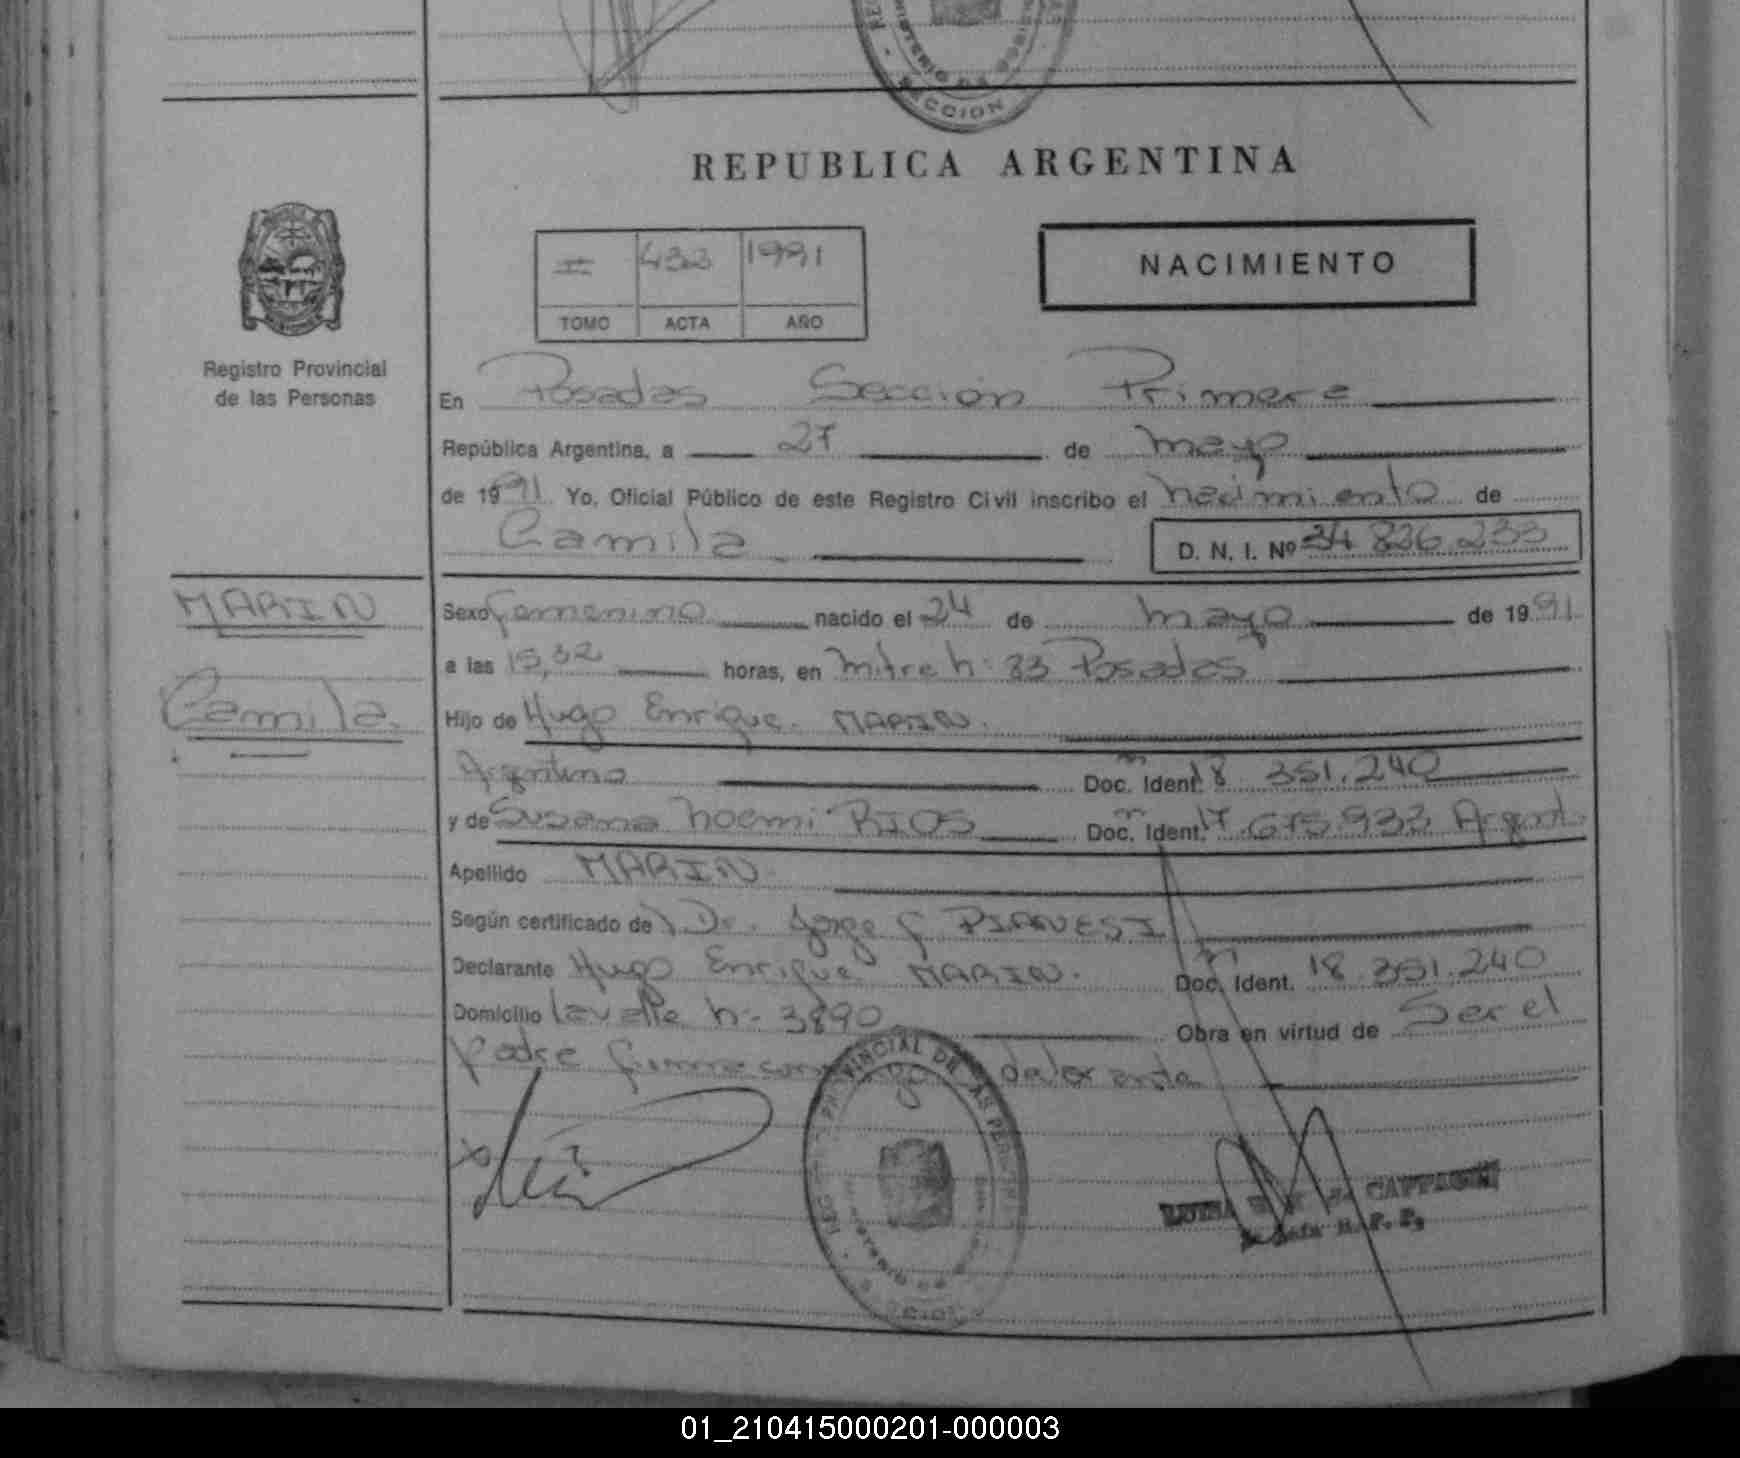 SECCION
REPUBLICA ARGENTINA
II 433 1991
TOMO ACTA AÑO
NACIMIENTO
Registro Provincial
de las Personas
En Posadas Sección Primera
República Argentina, a 27 de mayo
de 1991 Yo, Oficial Público de este Registro Civil inscribo el nacimiento de
Camila D. N. I. Nº 34 826 233
MARIN
Camila.
Sexo femenino nacido el 24 de mayo de 1991
a las 15,32 horas, en mitre n: 83 Posadas
Hijo de Hugo Enrique MARIN.
Argentino Doc. Ident. 18 351.240
y de Susana noemi RIOS Doc. Ident. 17 675.933 Argent.
Apellido MARIN
Según certificado de Dr. Jorge
Declarante Hugo Enrique MARIN. Doc. Ident. 18.351.240
Domicilio lavalle n- 3890 Obra en virtud de Ser el
padre
01_210415000201-000003